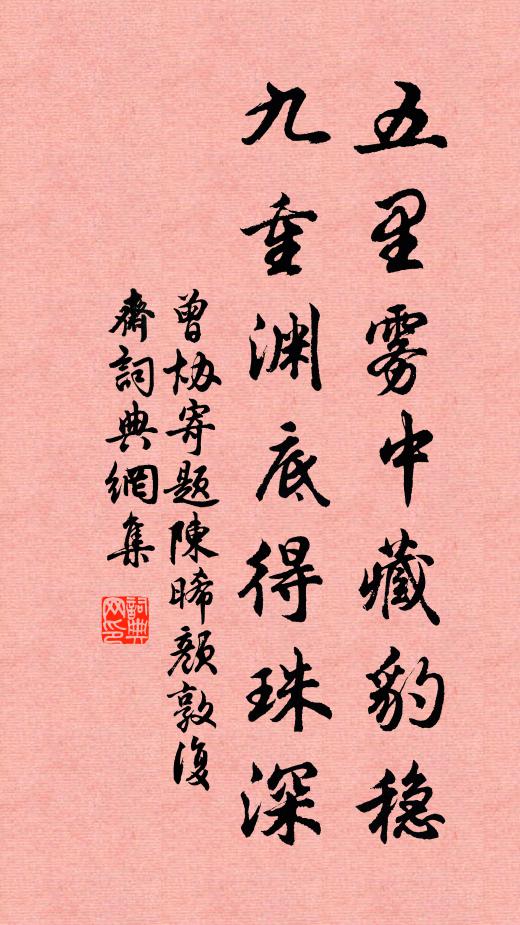 五里雾中藏豹稳
九重渊底得珠深
曾协寄题陳晞颜敦復
齋詞典網集
詞典
网印